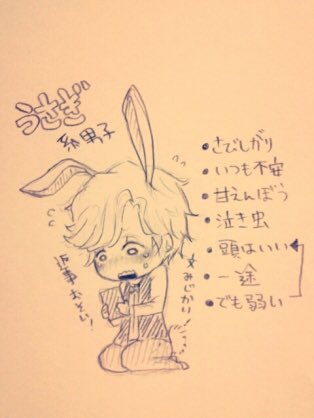 うさぎ
系男子
さびしがり
いつも不安
甘えんぼう
泣き虫
頭はいい
一途
でも弱い
返事おそい!
文みじかい!